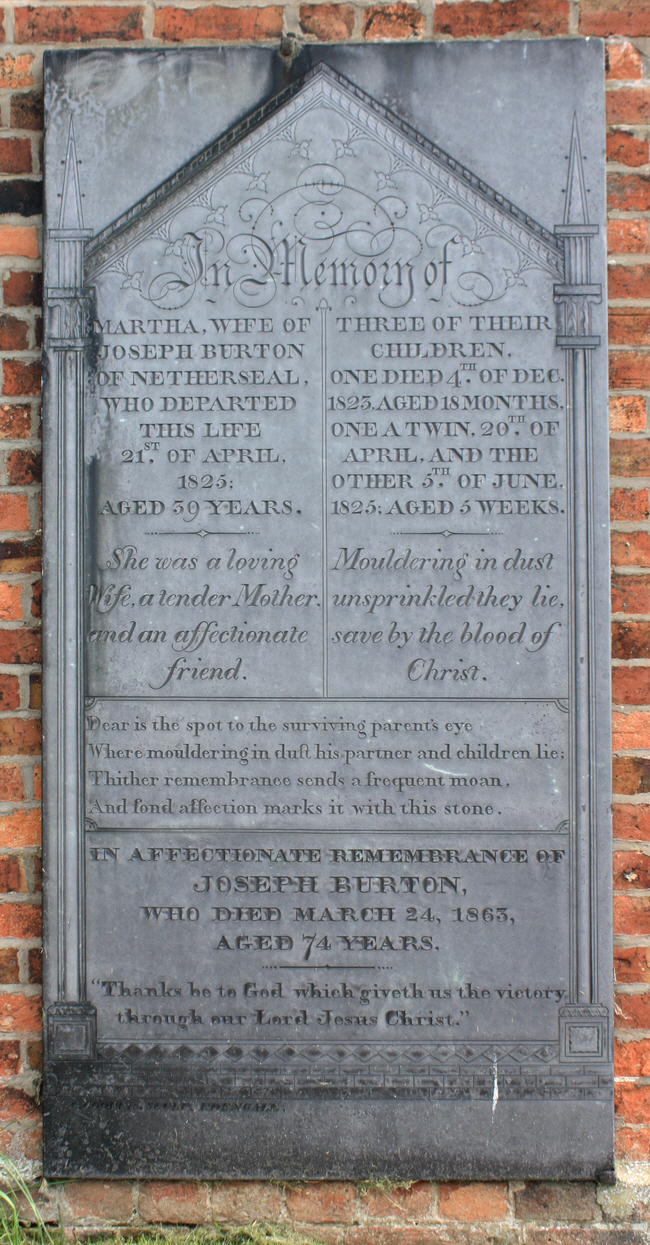 In Memory of
MARTHA, WIFE OF
JOSEPH BURTON
OF NETHERSEAL,
WHO DEPARTED
THIS LIFE
21ST. OF APRIL,
1825;
AGED 39 YEARS.
She was a loving
Wife, a tender Mother,
and an affectionate
friend.
THREE OF THEIR
CHILDREN,
ONE DIED 4TH. OF DEC.
1823, AGED 18 MONTHS,
ONE A TWIN, 20TH. OF
APRIL, AND THE
OTHER 5TH. OF JUNE,
1825; AGED 5 WEEKS.
Mouldering in dust
unsprinkled they lie,
save by the blood of
Christ.
Dear is the spot to the surviving parent's eye
Where mouldering in dust his partner and children lie;
Thither remembrance sends a frequent moan,
And fond affection marks it with this stone.
IN AFFECTIONATE REMEMBRANCE OF
JOSEPH BURTON,
WHO DIED MARCH 24, 1863,
AGED 74 YEARS.
"Thanks be to God which giveth us the victory
through our Lord Jesus Christ."
SCULPT. EDENGALE.